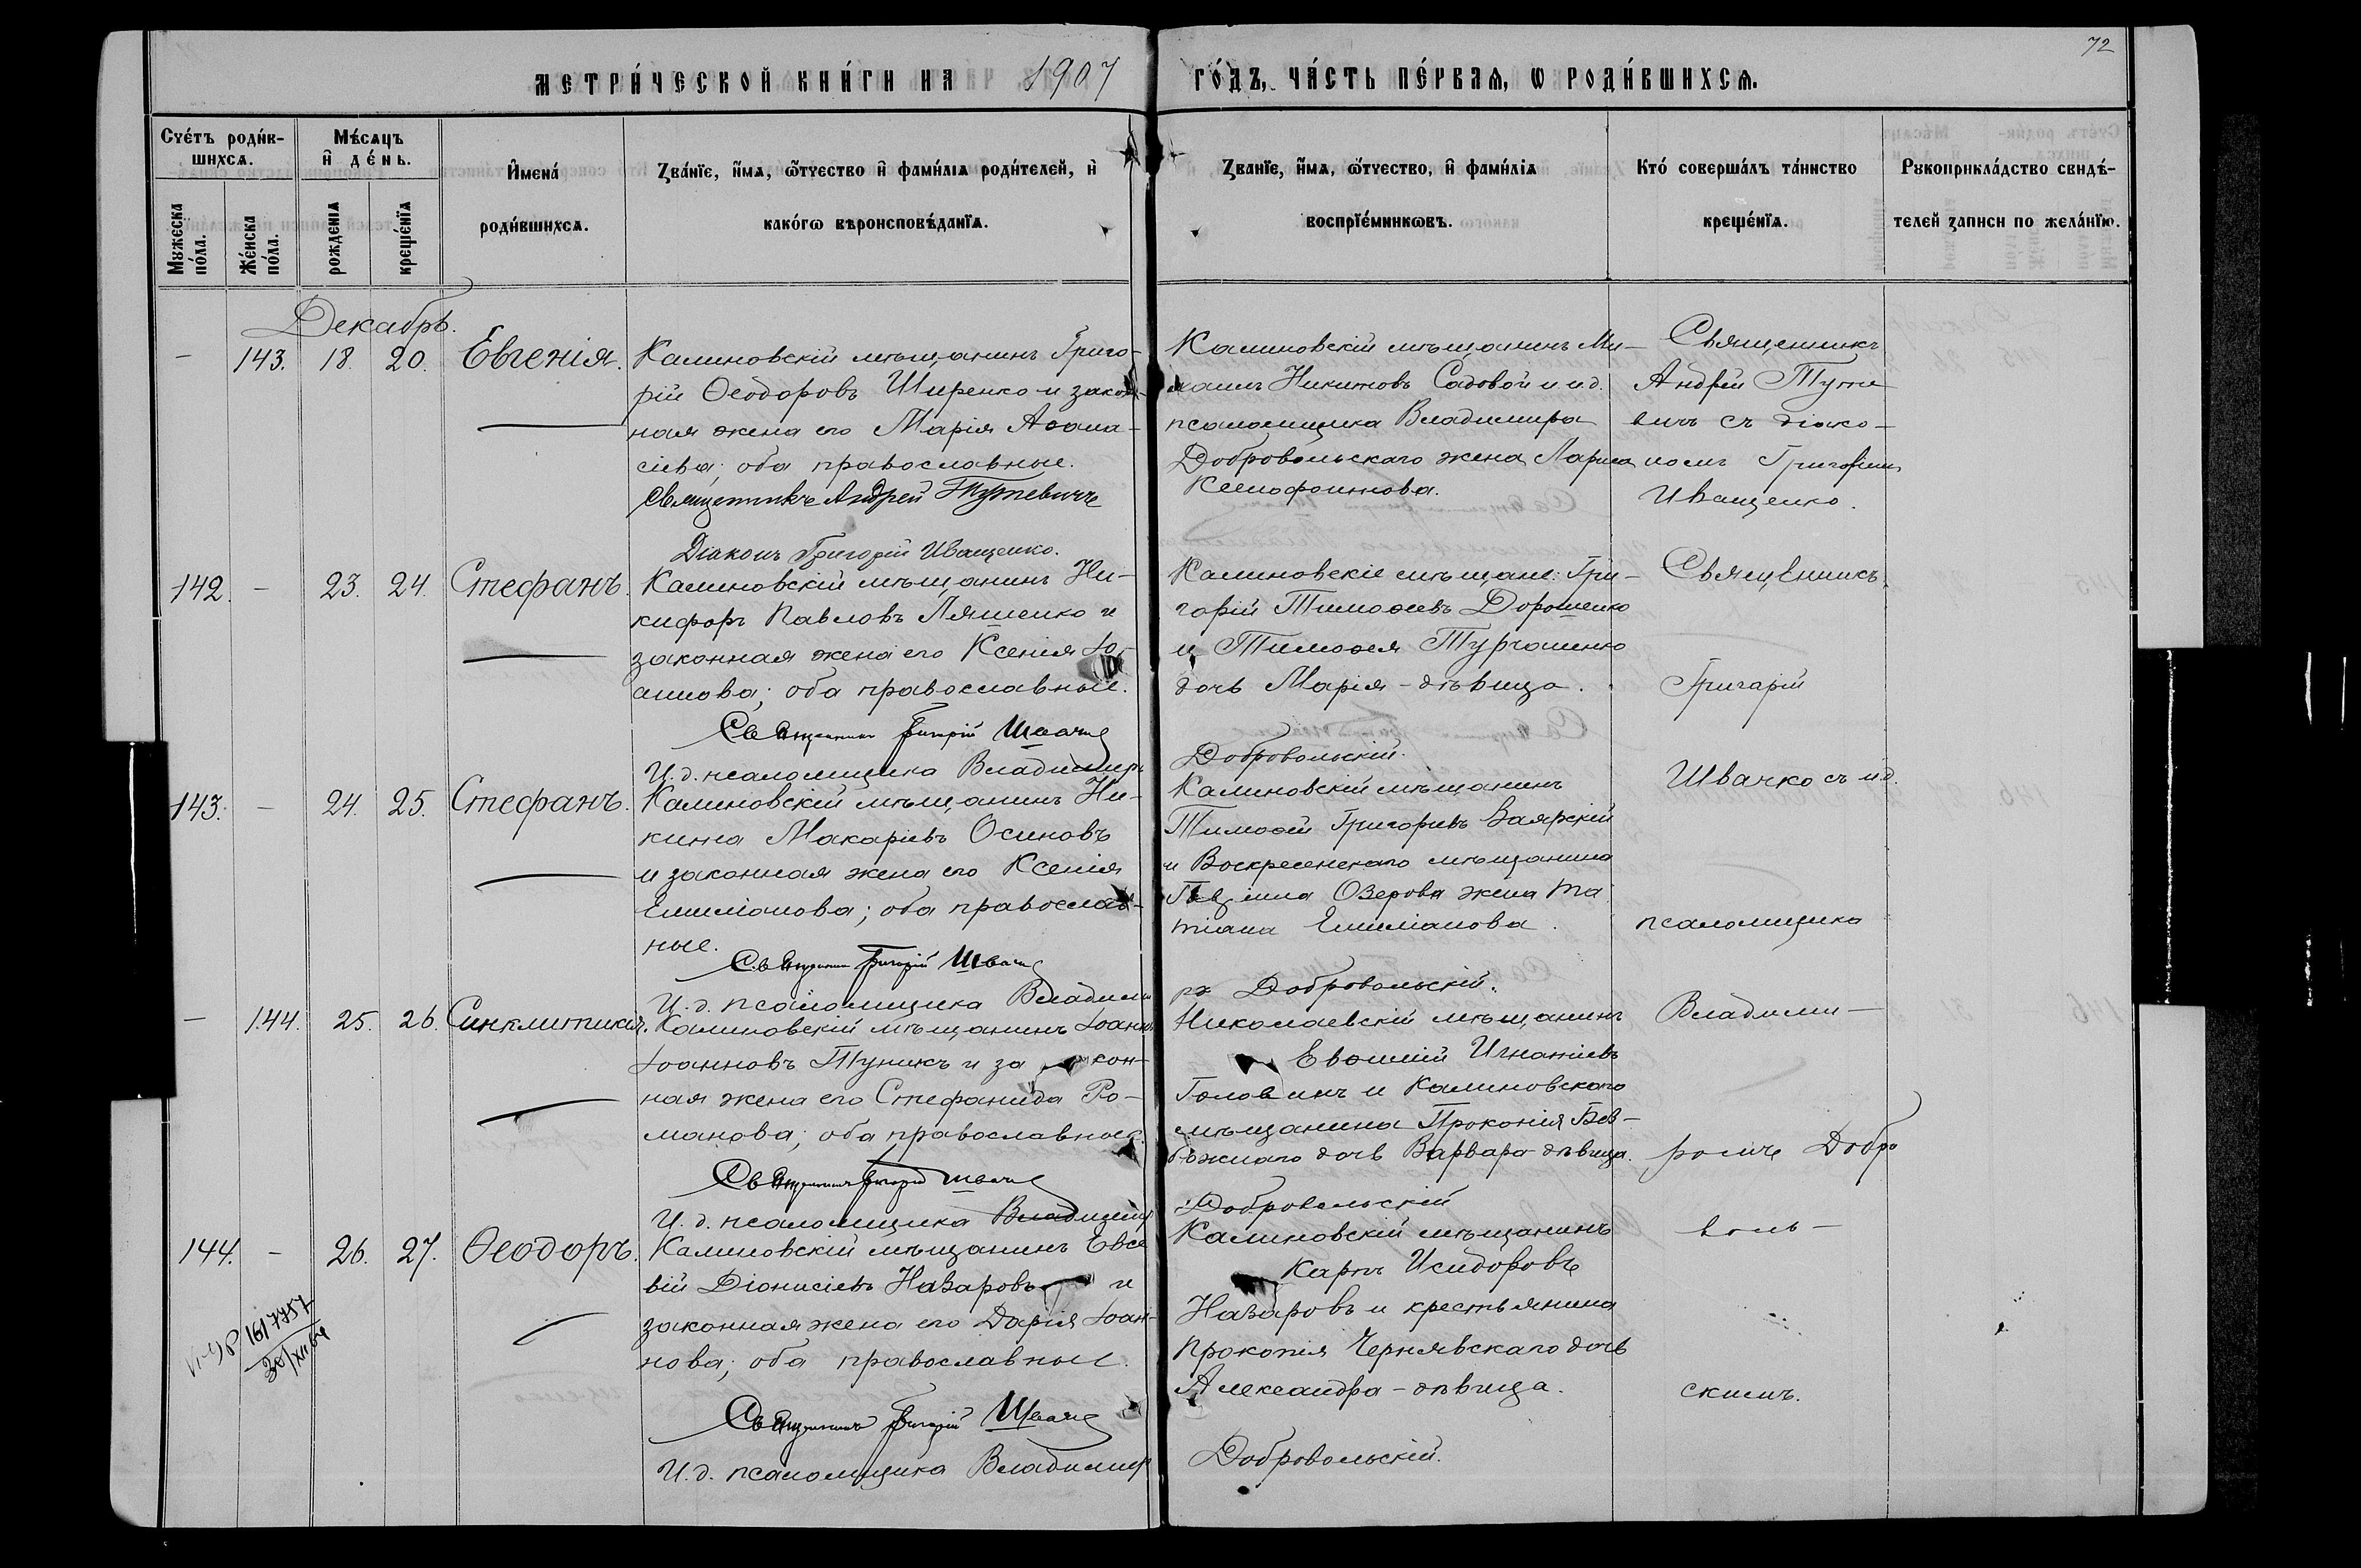 72
МЕТРИ́ЧЕСКОЙ КНИ́ГИ НА 1907 ГО́ДЪ, ЧА́СТЬ ПЕ́РВАѦ, Ѡ РОДИ́ВШИХСѦ.
Счетъ роди́в-
шихсѧ.
Мужеска
по́ла.
Же́нска
по́ла.
Мѣ́сѧцъ
и҆ де́нь.
рожденіѧ
креще́нїѧ
И҆мена́
роди́вшихсѧ.
Зва́нїе, и҆́мѧ, ѻ҆́тчество и҆ фами́лїѧ роди́телей, и҆
како́гѡ вѣроисповѣ́данїѧ.
Званїе, и҆́мѧ, ѻ҆́тчество, и҆ фами́лїѧ
воспрїе́мникѡвъ.
Кто́ соверша́лъ та́инство
креще́нїѧ.
Рꙋкоприкла́дство свидѣ́-
телей записи по жела́нїю.
Декабрь.
— 143. 18. 20. Евгенія.
Калиновскій мѣщанинъ Григо-
рій Ѳеодоровъ Ширенко и закон-
ная жена его Марія Аѳана-
сіева; оба православные.
Священникъ Андрей Тутевичъ
Діаконъ Григорій Иващенко.
Калиновскій мѣщанинъ Ми-
хаилъ Никитовъ Садовой и и.д.
псаломщика Владимира
Добровольскаго жена Лариса
Ксенофонтова.
Священникъ
Андрей Туте
вичъ съ діако-
номъ Григоріемъ
Иващенко.
142. — 23. 24. Стефанъ.
Калиновскій мѣщанинъ Ни-
кифоръ Павловъ Ляшенко и
законная жена его Ксенія Іо-
аннова; оба православные.
Священникъ Григорій Швачко
И.д. псаломщика Владимиръ
Калиновскіе мѣщане: Гри-
горій Тимоѳеевъ Дорошенко
и Тимоѳея Турчашенко
дочь Марія - дѣвица.
Добровольскій.
Священникъ
Григорій
Швачко съ и.д.
143. — 24. 25. Стефанъ.
Калиновскій мѣщанинъ Ни-
кита Макаріевъ Осиновъ
и законная жена его Ксенія
Емиліанова; оба православ-
ные.
Священникъ Григорій Швачко
И.д. псаломщика Владими
Калиновскій мѣщанинъ
Тимоѳей Григорьевъ Заярскій
и Воскресенскаго мѣщанина
Озерова жена Та
тіана Емиліанова.
ръ Добровольскій.
псаломщика
— 144. 25. 26. Синклитикія.
Калиновскій мѣщанинъ Іоаннъ
Іоанновъ Туникъ и за кон-
ная жена его Стефанида Ро-
манова; оба православные.
Священникъ Григорій Швачко
И.д. псаломщика Владимиръ
Николаевскій мѣщанинъ
Евѳимій Игнатіевъ
Головинъ и Калиновскаго
мѣщанина Прокопія Без-
дочь Варвара дѣвица.
Добровольскій
Владими-
ромъ Добро
144. — 26. 27. Ѳеодоръ.
Калиновскій мѣщанинъ Евсе
вій Діонисіевъ Назаровъ и
законная жена его Дарія Іоан-
нова; оба православные.
Священникъ Григорій Швачко
И.д. псаломщика Владимир
Калиновскій мѣщанинъ
Карпъ Исидоровъ
Назаровъ и крестьянина
Прокопія Чернявскаго дочь
Александра - дѣвица.
Добровольскій.
воль-
скимъ.
1617757